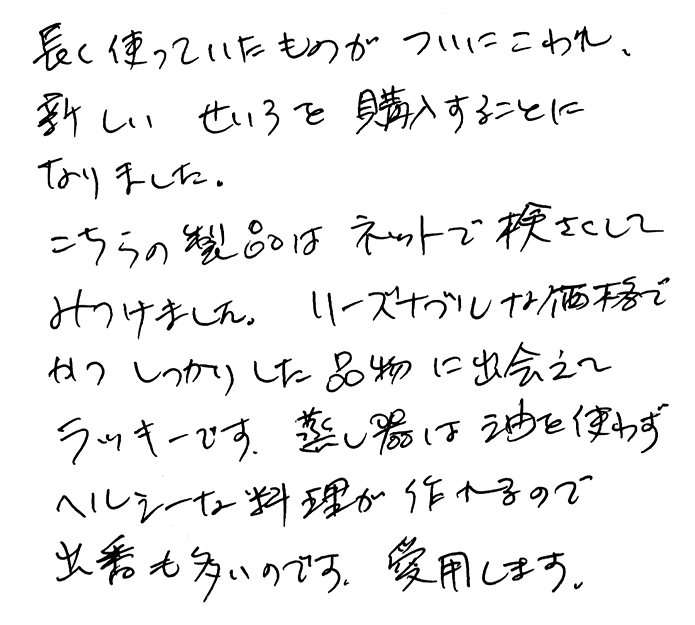 長く使っていたものが ついにこわれ、
新しい せいろを 購入することに
なりました。
こちらの製品は ネットで検さくして
みつけました。 リーズナブルな価格で
かつ しっかりした品物に出会えて
ラッキーです。蒸し器は油を使わず
ヘルシーな料理が 作れるので
出番も多いのです。愛用します。